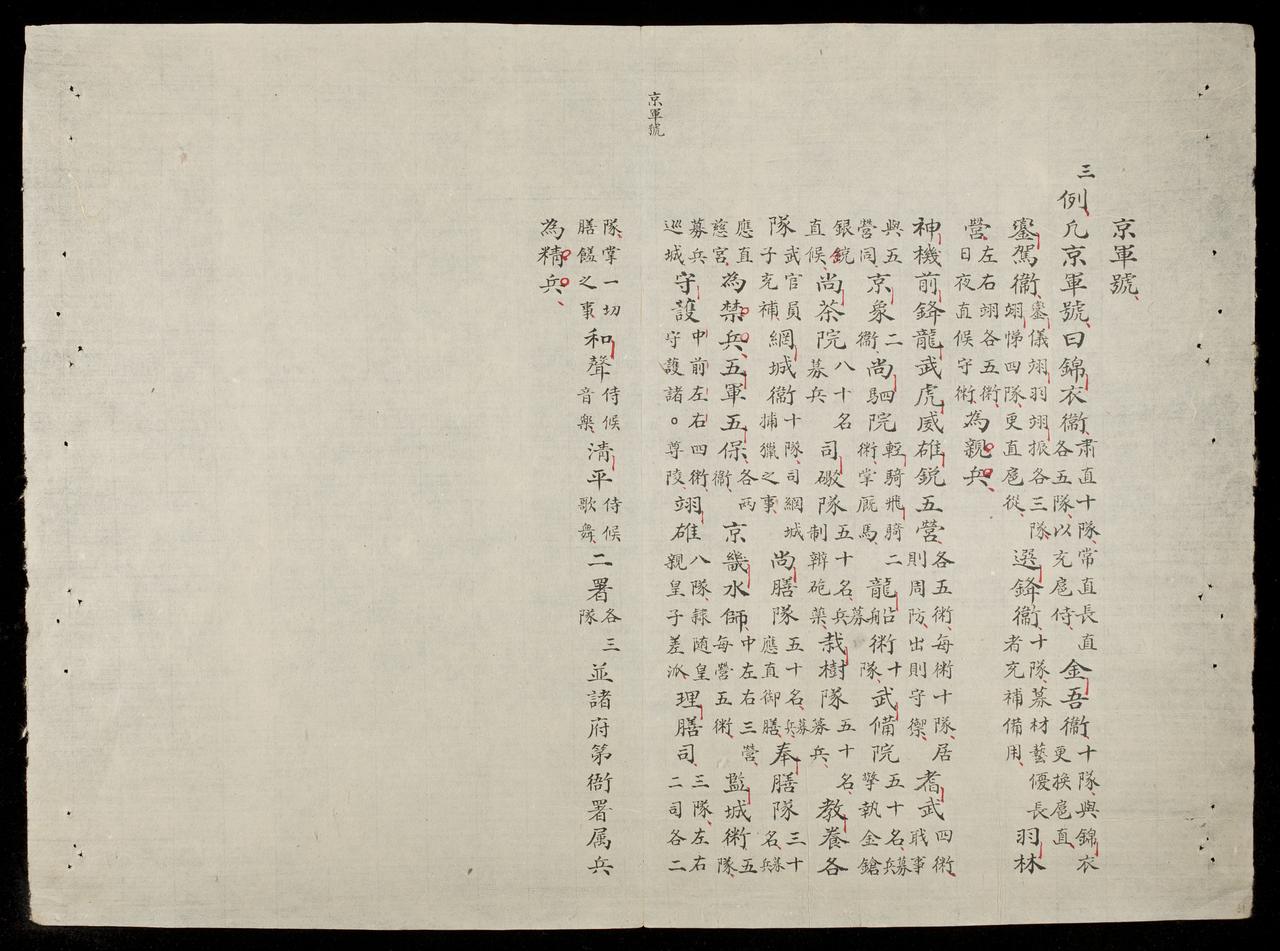 京軍號
三例凡京軍號曰錦衣衞肅直十隊常直長直各五隊以充扈侍金吾衞十隊與錦衣更換扈直
鑾駕衞鑾儀翊羽翊振各三隊翊悌四隊更直扈從選鋒衞十隊募材藝優長者充補備用羽林
營左右翊各五衛日夜直候守衛為親兵
神機前鋒龍武虎威雄銳五營各五衛每衛十隊居則周防出則守禦耆武四衛職事
與五營同京象二衞尚駟院輕騎飛騎二衛掌厩馬龍船衛十隊武備院五十名募兵擎執金鎗
銀銳直候尚茶院八十名募兵司礮隊五十名募兵制辦砲藥栽樹隊五十名募兵教養各
隊武官員子充補網城衞十隊司網城捕獵之事尚膳隊五十名募兵應直御膳奉膳隊三十名募兵
應直慈宮為禁兵五軍五保各两衞京畿水師中左右三營每營五衛監城衛五隊
募兵巡城守護中前左右四衛守護諸。尊陵翊雄八隊隸随皇親皇子差派理膳司三隊左右二司各二
隊掌一切膳饈之事和聲侍候音樂清平侍候歌舞二署各三隊並諸府第衙署属兵
為精兵
京軍號